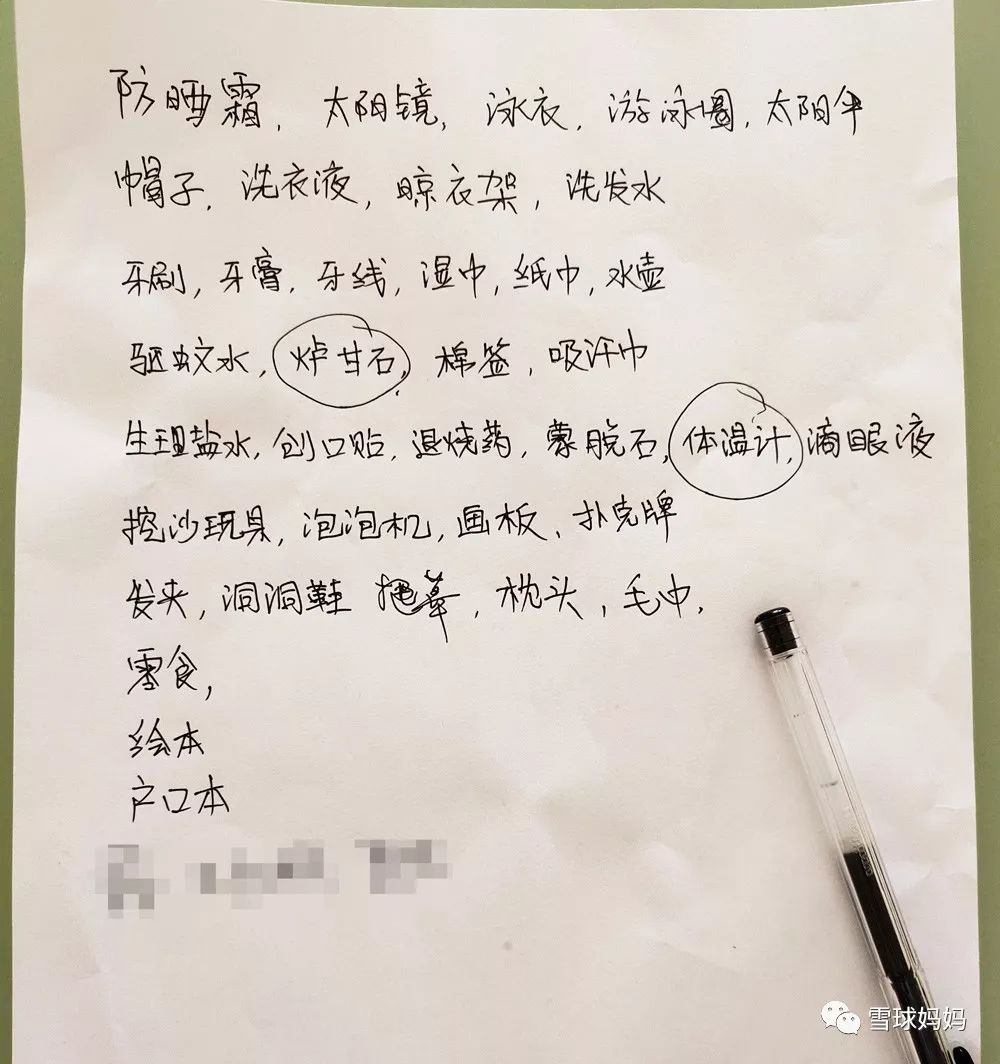 防晒霜, 太阳镜, 泳衣, 游泳圈, 太阳伞
帽子, 洗衣液, 晾衣架, 洗发水
牙刷, 牙膏, 牙线, 湿巾, 纸巾, 水壶
驱蚊水, 炉甘石, 棉签, 吸汗巾
生理盐水, 创口贴, 退烧药, 蒙脱石, 体温计, 滴眼液
挖沙玩具, 泡泡机, 画板、扑克牌
发夹, 洞洞鞋, 枕头, 毛巾,
零食,
绘本
户口本
雪球妈妈